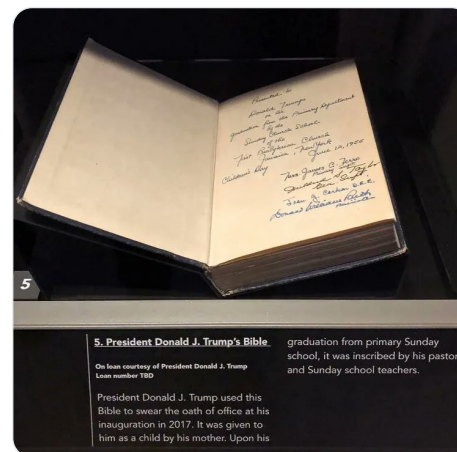 Presented to
Donald Trump
on his
graduation from the Primary Department
of the
Sunday Church School
of the
First Presbyterian Church
Jamaica, New York
Children's Day June 12, 1955
5
5. President Donald J. Trump's Bible
On loan courtesy of President Donald J. Trump
Loan number TBD
President Donald J. Trump used this
Bible to swear the oath of office at his
inauguration in 2017. It was given to
him as a child by his mother. Upon his
graduation from primary Sunday
school, it was inscribed by his pastor
and Sunday school teachers.